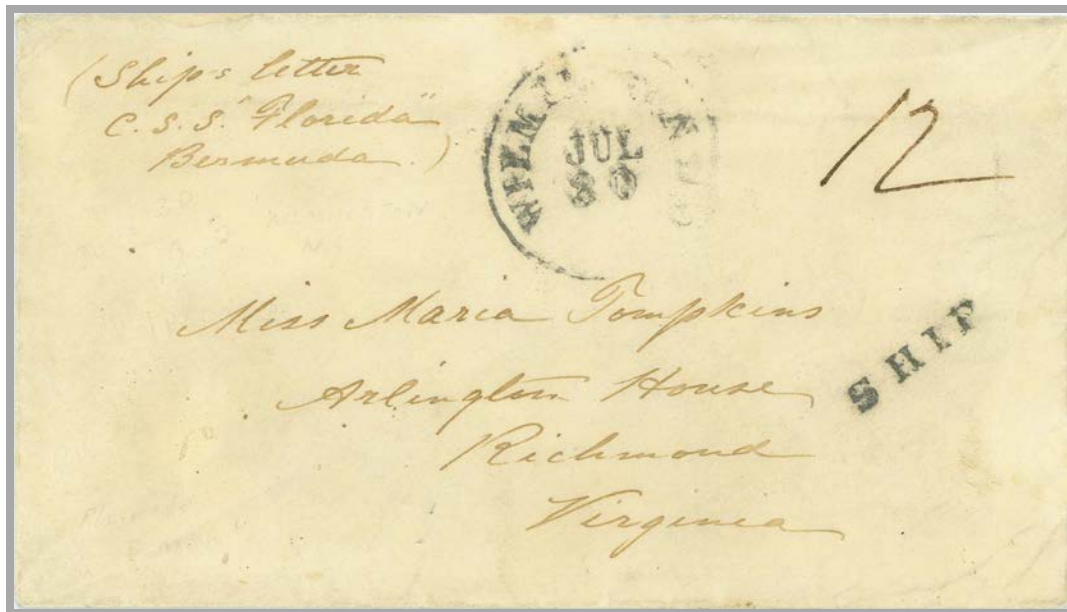 (Ship's letter
C.S.S. "Florida"
Bermuda.)
WILMI N.C.
JUL
30
12
Miss Maria Tompkins
Arlington House
Richmond
Virginia
SHIP